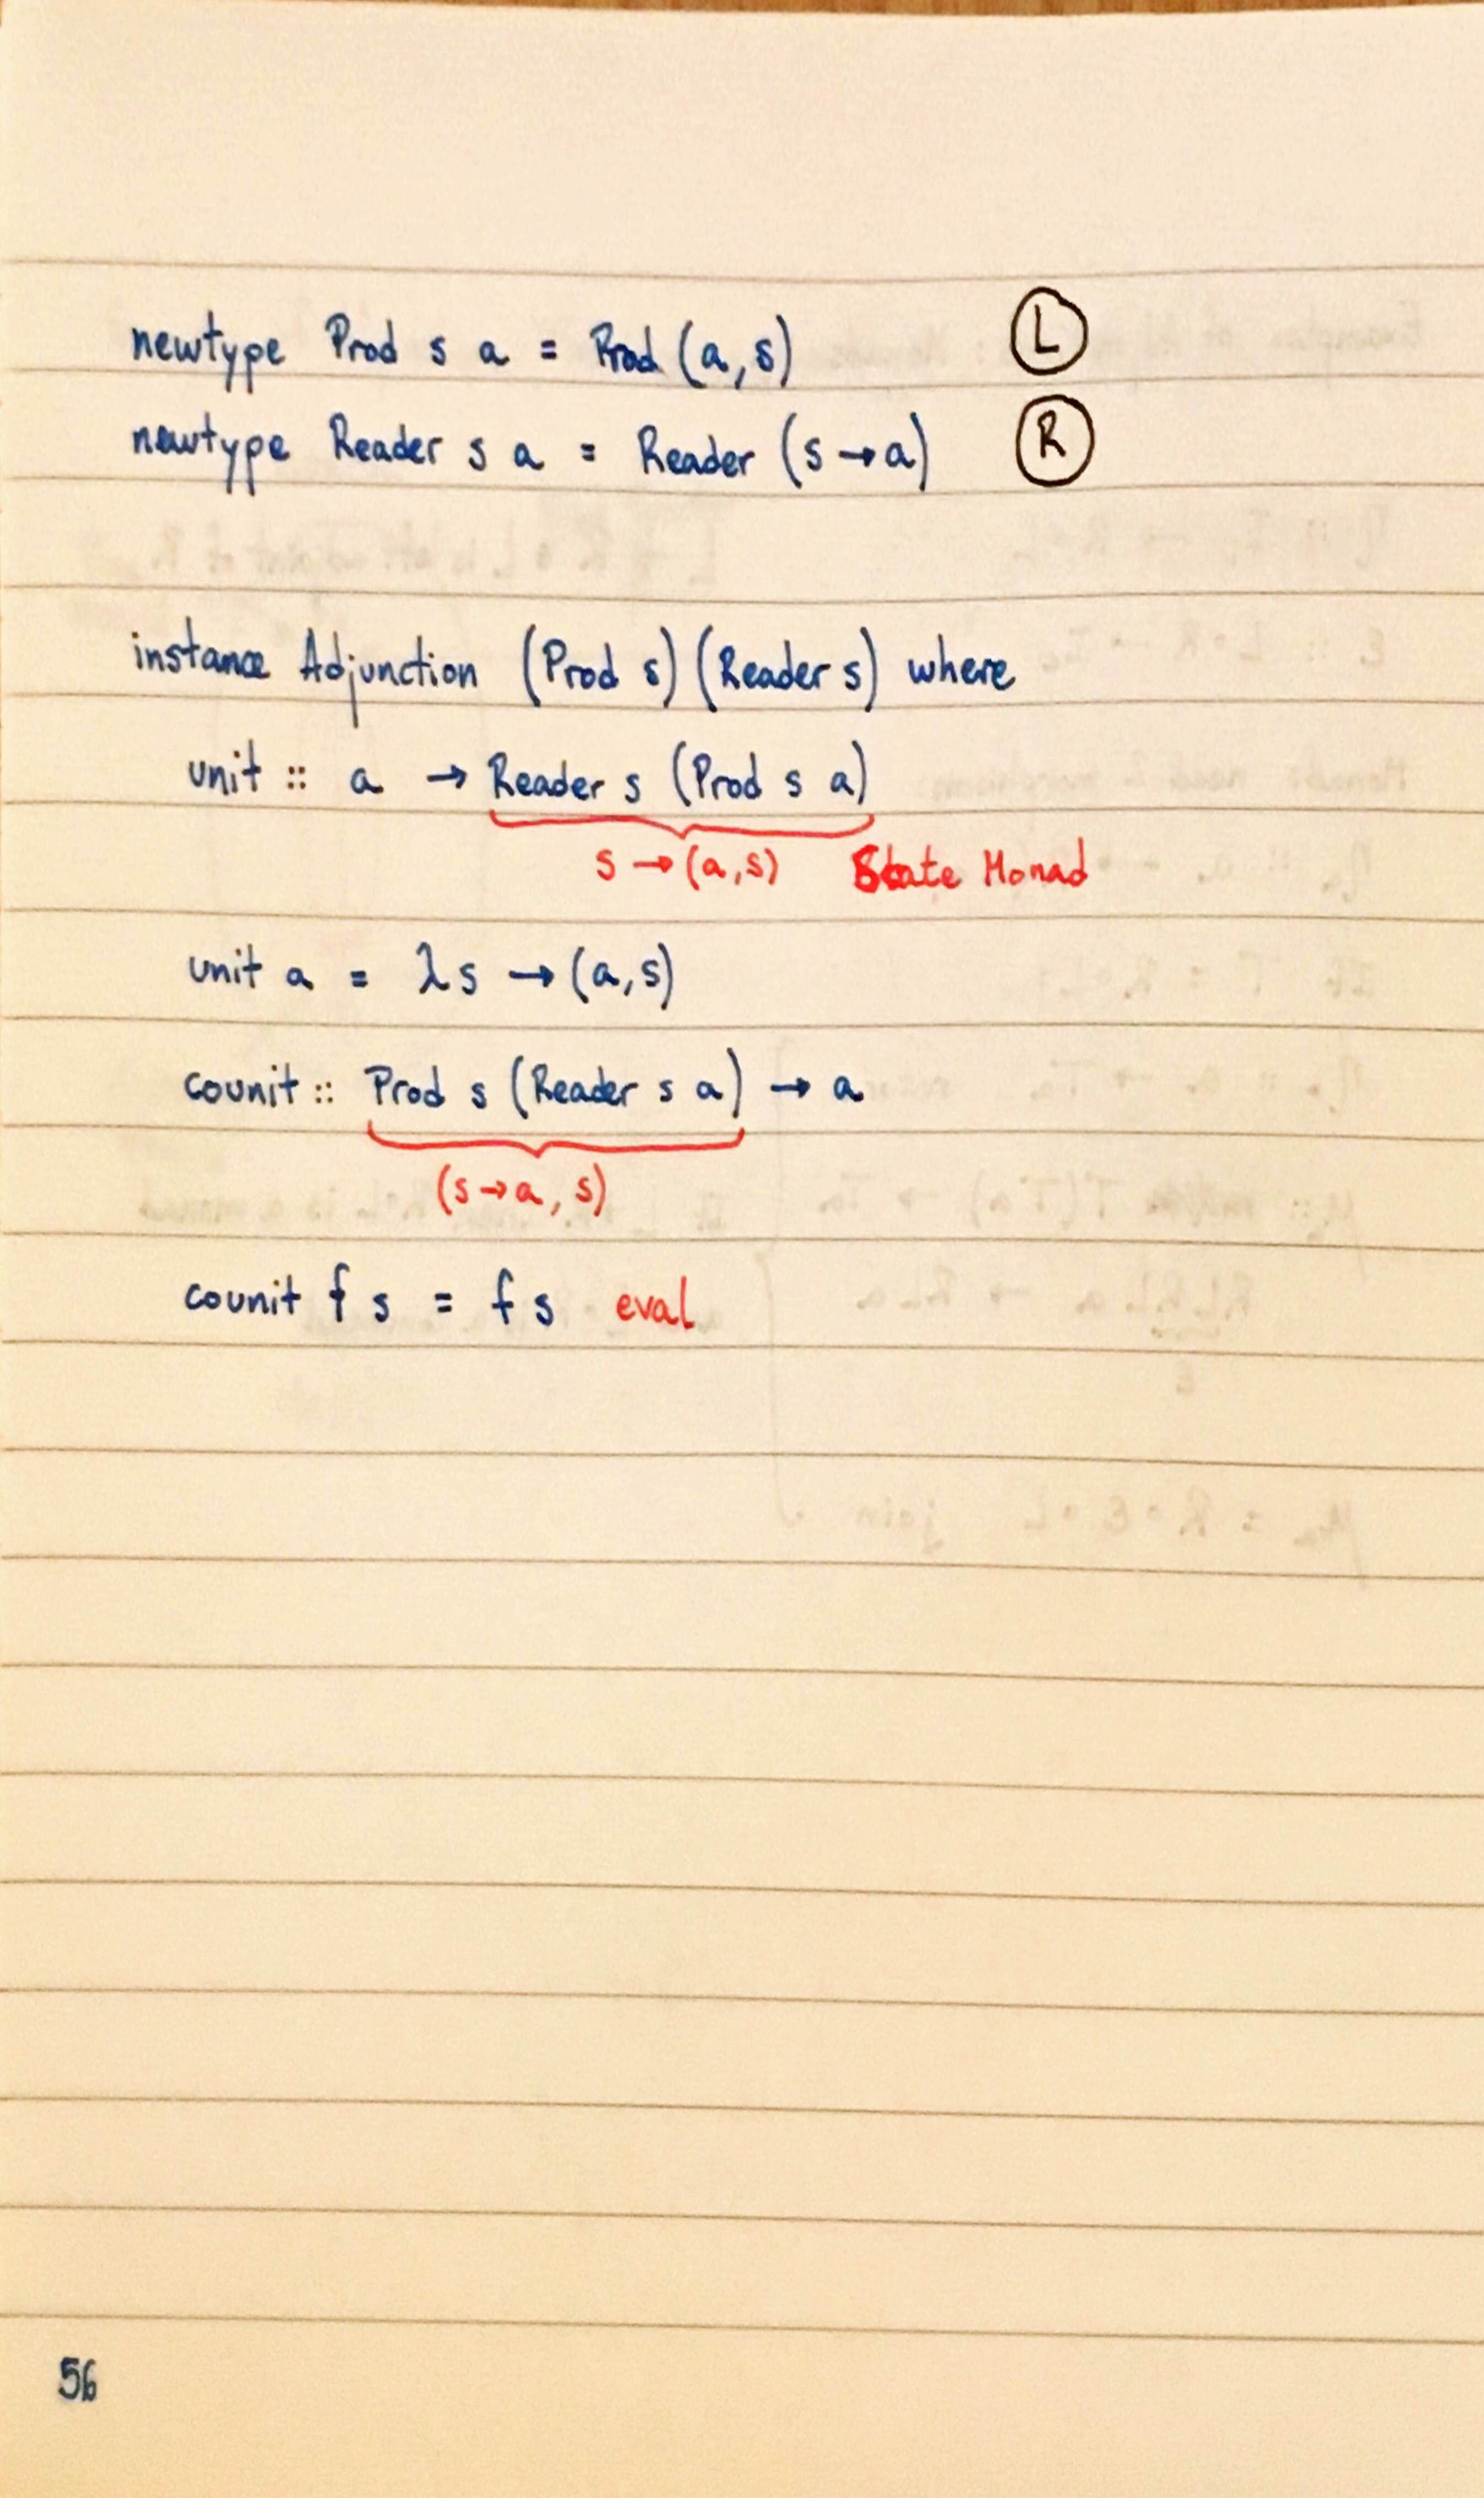 newtype Prod s a = Prod (a, s) L
newtype Reader s a = Reader (s → a) R
instance Adjunction (Prod s) (Reader s) where
unit :: a → Reader s (Prod s a)
s → (a, s) State Monad
unit a = λs → (a, s)
counit :: Prod s (Reader s a) → a
(s → a, s)
counit f s = f s eval
56